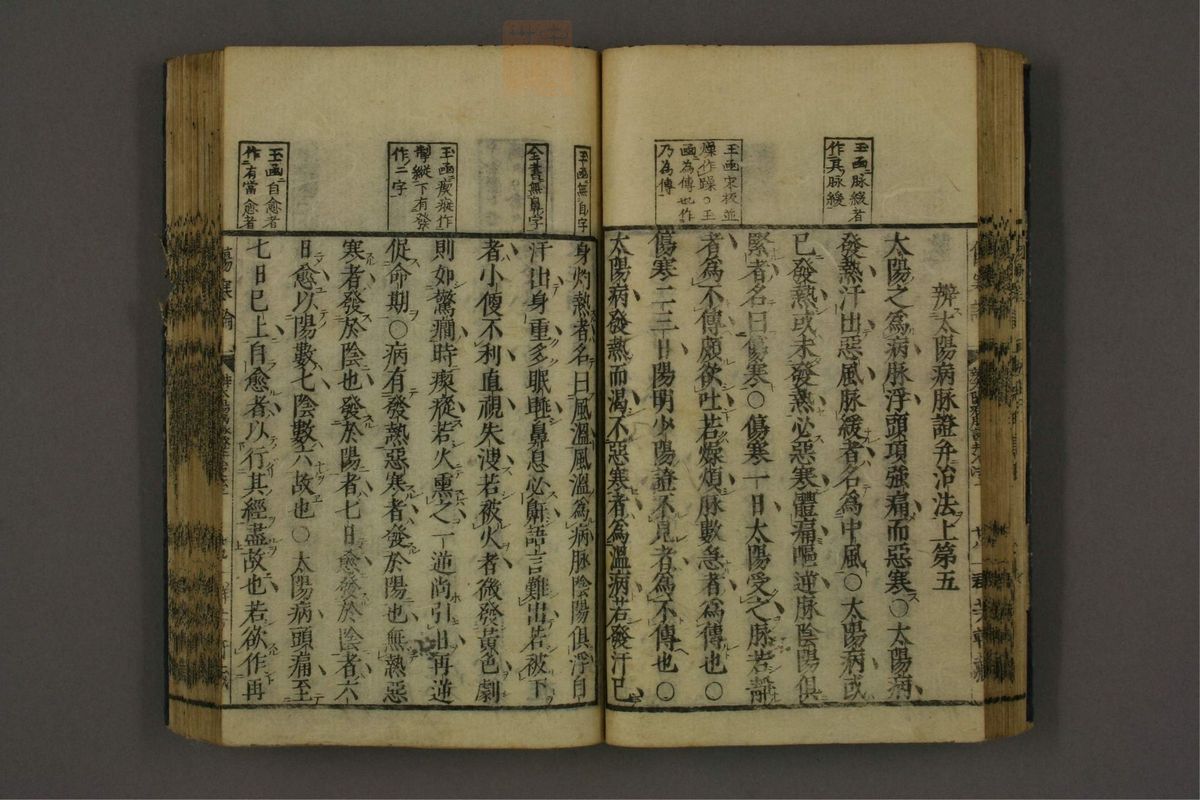 玉函脉緩者
作其脉緩
玉函宋板並
燥作躁○玉
函為傳也作
乃為傳
辨太陽病脉證并治法上第五
太陽之爲病脉浮頭項強痛而惡寒○太陽病
發熱汗出惡風脉緩者名爲中風○太陽病或
已發熱或未發熱必惡寒體痛嘔逆脉陰陽俱
緊者名曰傷寒○傷寒一日太陽受之脉若靜
者爲不傳頗欲吐若燥煩脉數急者爲傳也○
傷寒二三日陽明少陽證不見者爲不傳也○
太陽病發熱而渴不惡寒者爲溫病若發汗已
玉函無自字
全書無鼻字
玉函瘈瘲作
掣縱下有發
作二字
玉函自愈者
作有當愈者
身灼熱者名曰風溫風溫爲病脉陰陽俱浮自
汗出身重多眠睡鼻息必鼾語言難出若被下
者小便不利直視失溲若被火者微發黃色劇
則如驚癇時瘈瘲若火熏之一逆尚引日再逆
促命期○病有發熱惡寒者發於陽也無熱惡
寒者發於陰也發於陽者七日愈發於陰者六
日愈以陽數七陰數六故也○太陽病頭痛至
七日已上自愈者以行其經盡故也若欲作再
傷寒論